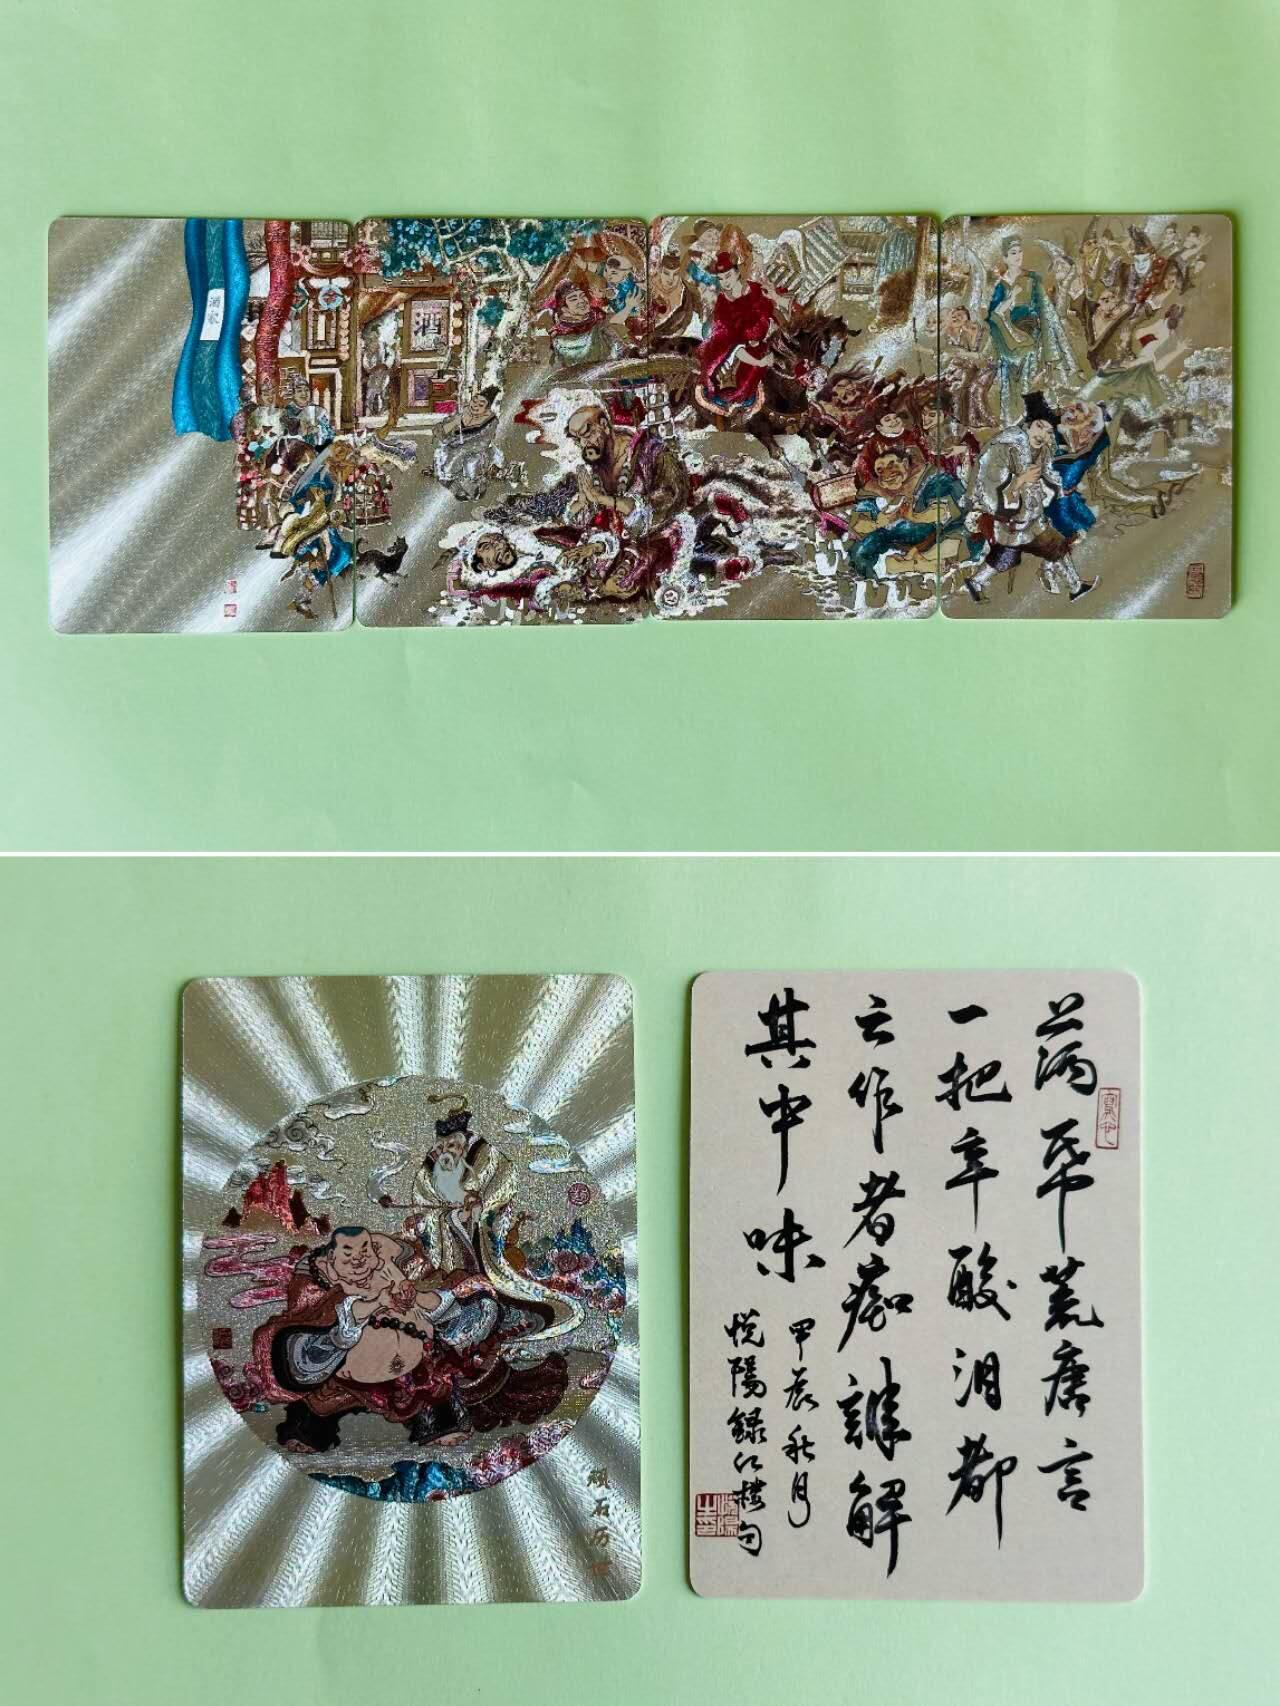 酒家
酒
顽石历
满帋荒唐言
一把辛酸泪都
云作者痴誰解
其中味
甲辰秋月
悦陽録红楼句